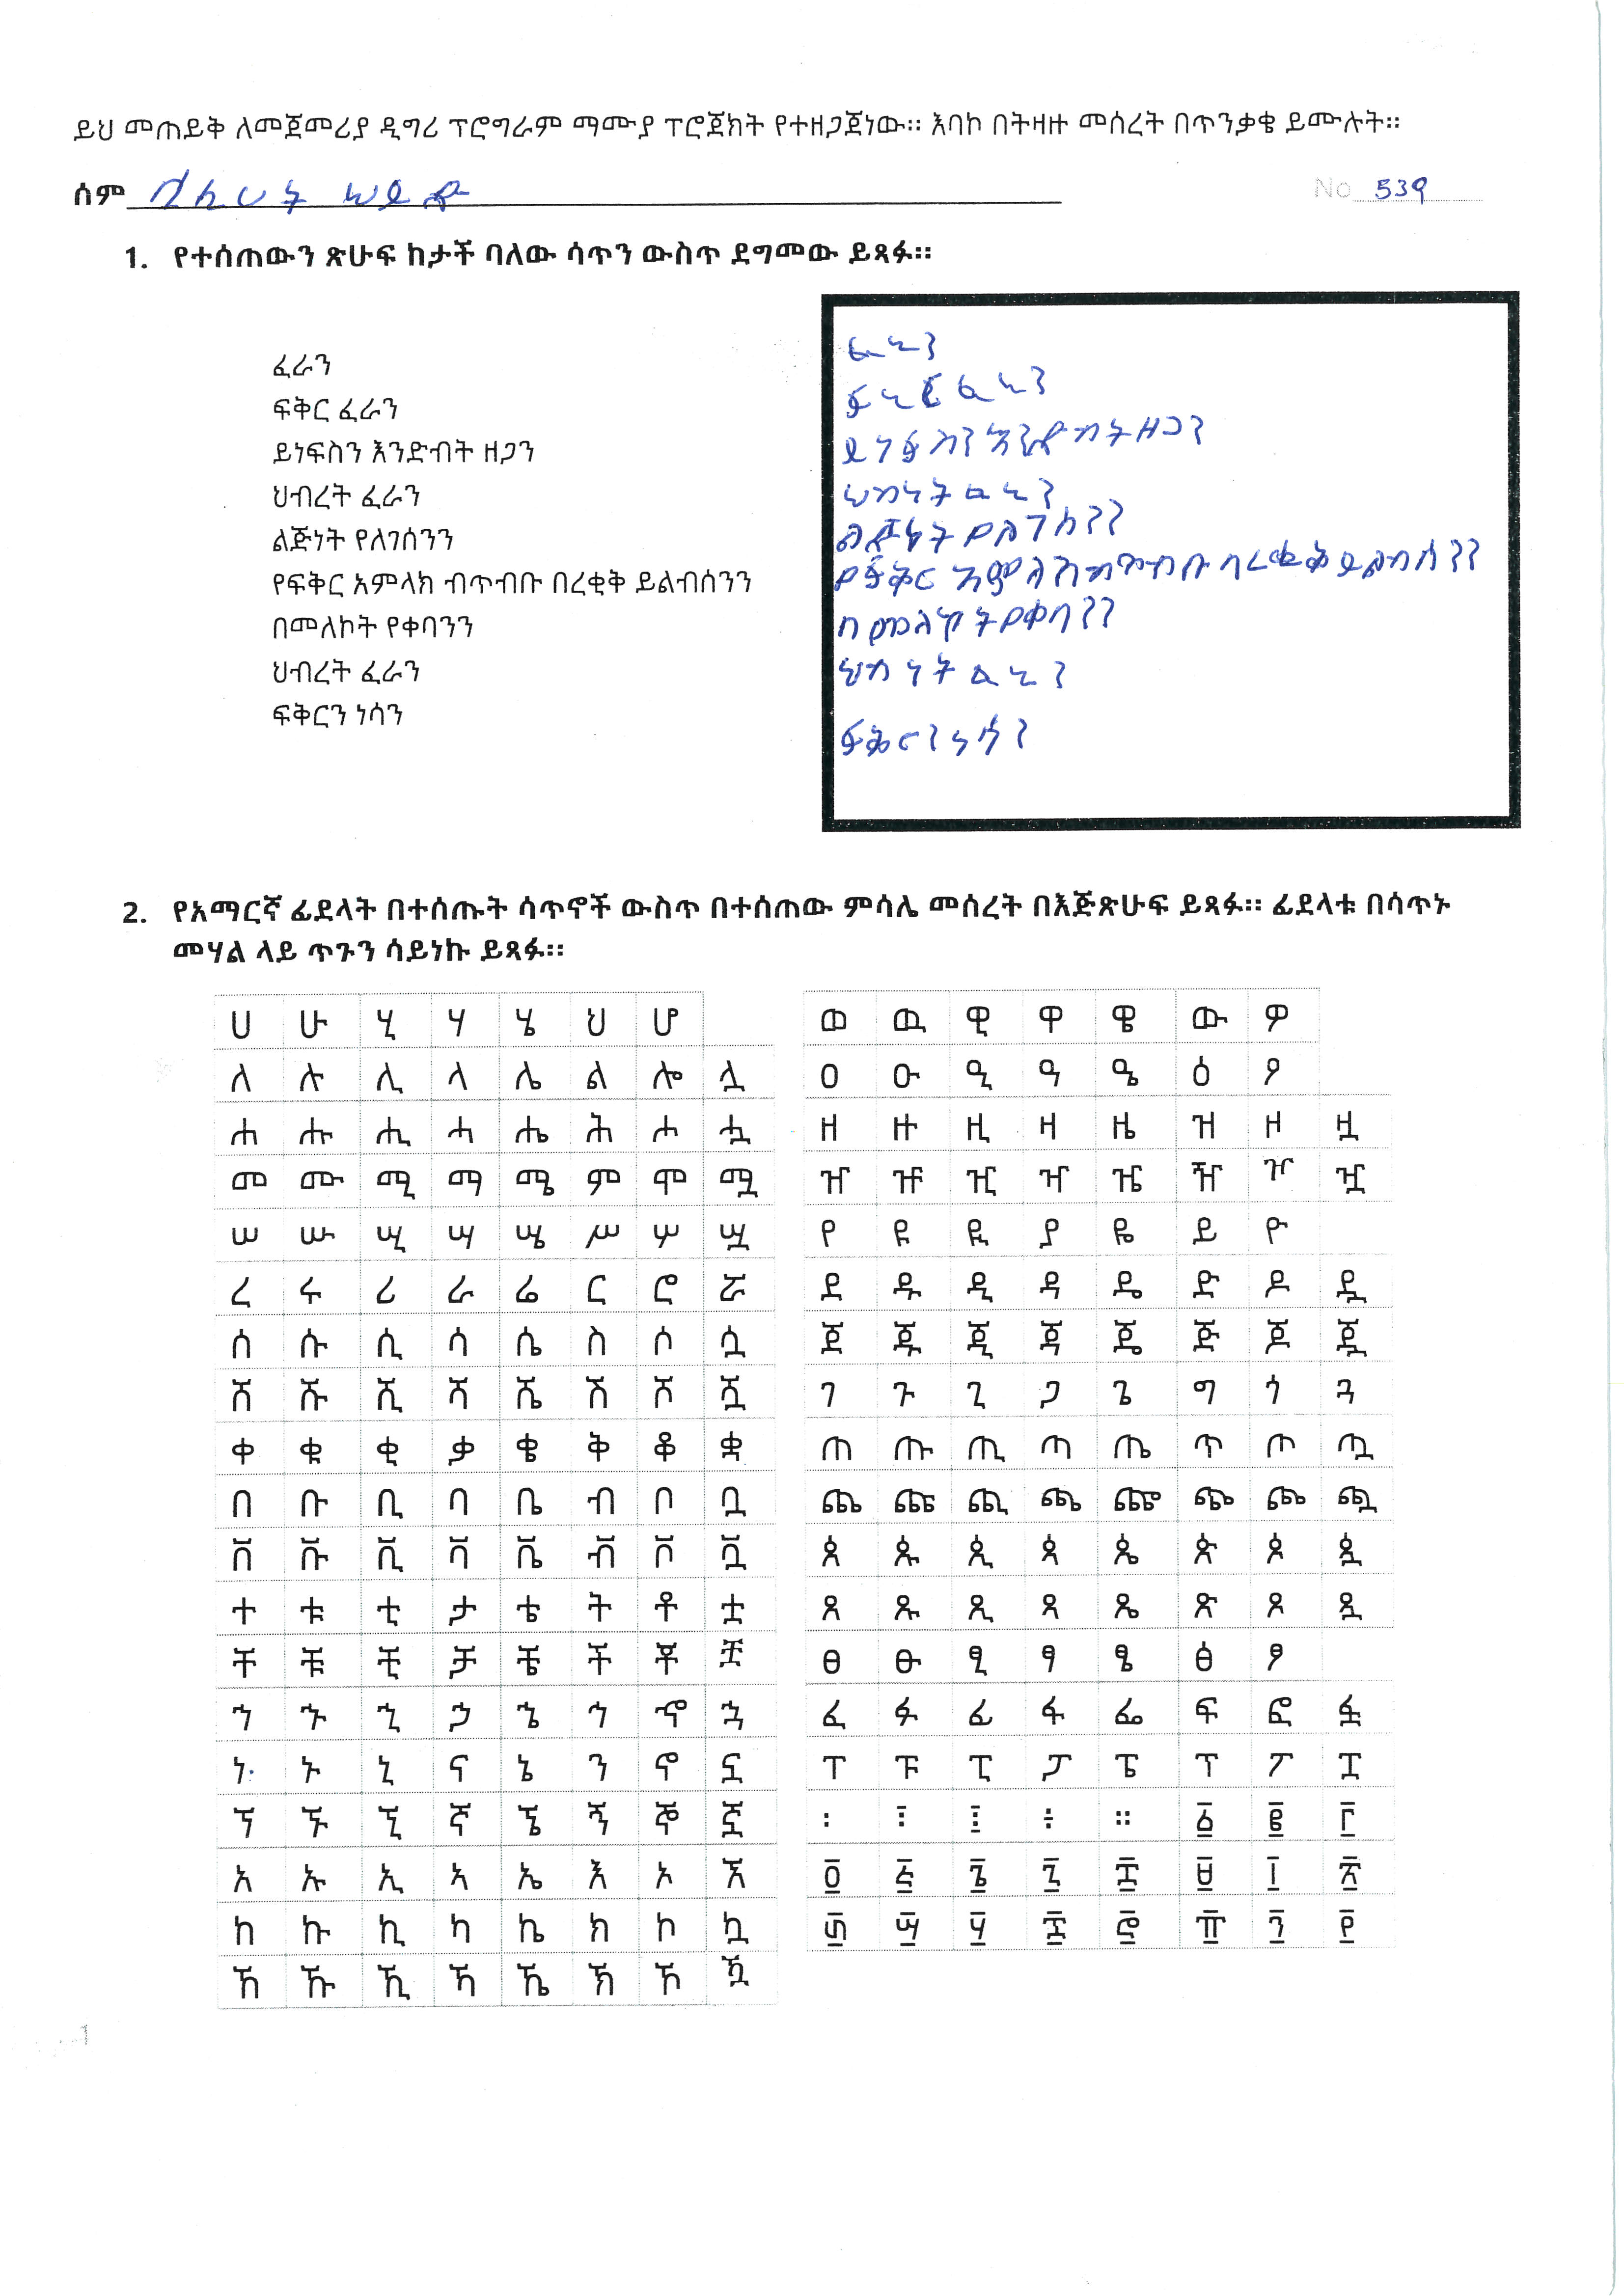 ይህ መጠይቅ ለመጀመሪያ ዲግሪ ፕሮግራም ማሙያ ፕሮጀክት የተዘጋጀነው። እባኮ በትዛዙ መሰረት በጥንቃቄ ይሙሉት።
ሰም
No 539
1. የተሰጠውን ጽሁፍ ከታች ባለው ሳጥን ውስጥ ደግመው ይጻፉ።
ፈራን
ፍቅር ፈራን
ይነፍስን እንድብት ዘጋን
ህብረት ፈራን
ልጅነት የለገሰንን
የፍቅር አምላክ ብጥብቡ በረቂቅ ይልብሰንን
በመለኮት የቀባንን
ህብረት ፈራን
ፍቅርን ነሳን
ይነፍስን እንድብት ዘጋን
ልጅነት የለገሰንን
የፍቅር አምላክ ብጥብቡ በረቂቅ ይልብሰንን
በመለኮት የቀባንን
ፍቅርን ነሳን
2. የአማርኛ ፊደላት በተሰጡት ሳጥኖች ውስጥ በተሰጠው ምሳሌ መሰረት በእጅጽሁፍ ይጻፉ። ፊደላቱ በሳጥኑ
መሃል ላይ ጥጉን ሳይነኩ ይጻፉ።
ሀ ሁ ሂ ሃ ሄ ህ ሆ
ለ ሉ ሊ ላ ሌ ል ሎ ሏ
ሐ ሑ ሒ ሓ ሔ ሕ ሖ ሗ
መ ሙ ሚ ማ ሜ ም ሞ ሟ
ሠ ሡ ሢ ሣ ሤ ሥ ሦ ሧ
ረ ሩ ሪ ራ ሬ ር ሮ ሯ
ሰ ሱ ሲ ሳ ሴ ስ ሶ ሷ
ሸ ሹ ሺ ሻ ሼ ሽ ሾ ሿ
ቀ ቁ ቂ ቃ ቄ ቅ ቆ ቋ
በ ቡ ቢ ባ ቤ ብ ቦ ቧ
ቨ ቩ ቪ ቫ ቬ ቭ ቮ ቯ
ተ ቱ ቲ ታ ቴ ት ቶ ቷ
ቸ ቹ ቺ ቻ ቼ ች ቾ ቿ
ኀ ኁ ኂ ኃ ኄ ኅ ኆ ኋ
ነ ኑ ኒ ና ኔ ን ኖ ኗ
ኘ ኙ ኚ ኛ ኜ ኝ ኞ ኟ
አ ኡ ኢ ኣ ኤ እ ኦ ኧ
ከ ኩ ኪ ካ ኬ ክ ኮ ኳ
ኸ ኹ ኺ ኻ ኼ ኽ ኾ ዃ
ወ ዉ ዊ ዋ ዌ ው ዎ
ዐ ዑ ዒ ዓ ዔ ዕ ዖ
ዘ ዙ ዚ ዛ ዜ ዝ ዞ ዟ
ዠ ዡ ዢ ዣ ዤ ዥ ዦ ዧ
የ ዩ ዪ ያ ዬ ይ ዮ
ደ ዱ ዲ ዳ ዴ ድ ዶ ዷ
ጀ ጁ ጂ ጃ ጄ ጅ ጆ ጇ
ገ ጉ ጊ ጋ ጌ ግ ጎ ጓ
ጠ ጡ ጢ ጣ ጤ ጥ ጦ ጧ
ጨ ጩ ጪ ጫ ጬ ጭ ጮ ጯ
ጰ ጱ ጲ ጳ ጴ ጵ ጶ ጷ
ጸ ጹ ጺ ጻ ጼ ጽ ጾ ጿ
ፀ ፁ ፂ ፃ ፄ ፅ ፆ
ፈ ፉ ፊ ፋ ፌ ፍ ፎ ፏ
ፐ ፑ ፒ ፓ ፔ ፕ ፖ ፗ
፡ ፣ ፤ ፥ ። ፩ ፪ ፫
፬ ፭ ፮ ፯ ፰ ፱ ፲ ፳
፴ ፵ ፶ ፷ ፸ ፹ ፺ ፻
1